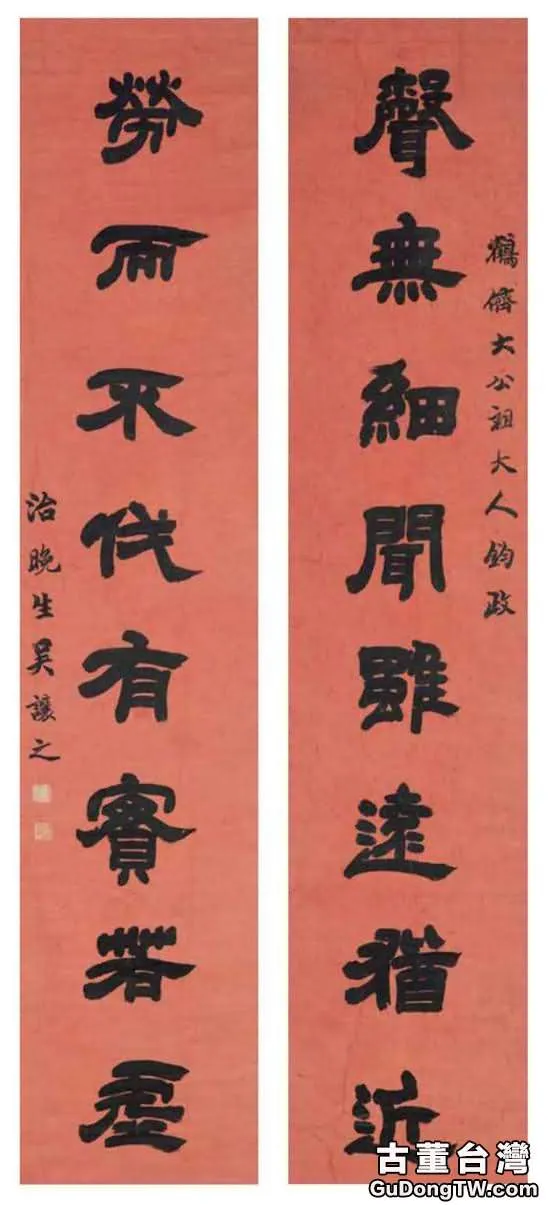 鶴儕大公祖大人鈞政
聲無細聞雖遠猶近
勞而不伐有實若虛
治晚生吳讓之
古董台灣
GuDongTW.com